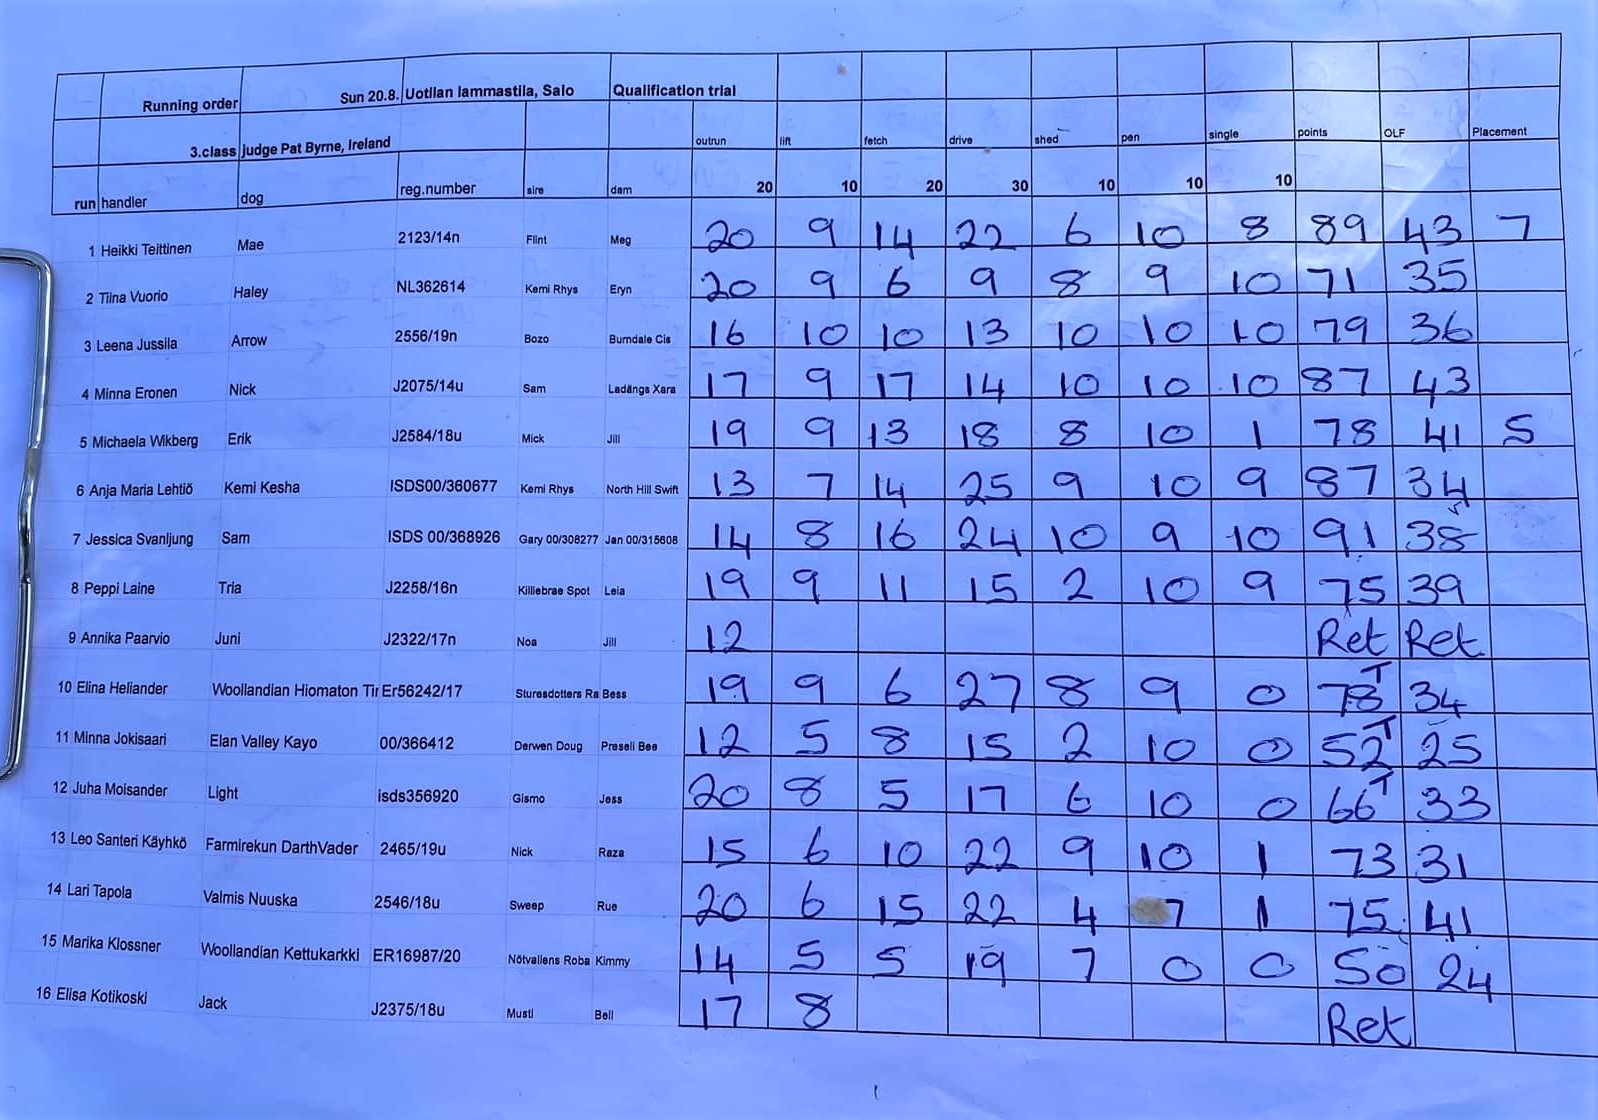 Running order Sun 20.8. Uotilan lammastila, Salo Qualification trial
3.class judge Pat Byrne, Ireland outrun lift fetch drive shed pen single points OLF Placement
run handler dog reg.number sire dam 20 10 20 30 10 10 10
1 Heikki Teittinen Mae 2123/14n Flint Meg 20 9 14 22 6 10 8 89 43 7
2 Tiina Vuorio Haley NL362614 Kemi Rhys Eryn 20 9 6 9 8 9 10 71 35
3 Leena Jussila Arrow 2556/19n Bozo Burndale Cis 16 10 10 13 10 10 10 79 36
4 Minna Eronen Nick J2075/14u Sam Ladängs Xara 17 9 17 14 10 10 10 87 43
5 Michaela Wikberg Erik J2584/18u Mick Jill 19 9 13 18 8 10 1 78 41 5
6 Anja Maria Lehtiö Kemi Kesha ISDS00/360677 Kemi Rhys North Hill Swift 13 7 14 25 9 10 9 87 34
7 Jessica Svanljung Sam ISDS 00/368926 Gary 00/308277 Jan 00/315608 14 8 16 24 10 9 10 91 38
8 Peppi Laine Tria J2258/16n Killiebrae Spot Leia 19 9 11 15 2 10 9 75 39
9 Annika Paarvio Juni J2322/17n Noa Jill 12 Ret Ret
10 Elina Heliander Woollandian Hiomaton Tir Er56242/17 Sturesdotters Ra Bess 19 9 6 27 8 9 0 78 T 34
11 Minna Jokisaari Elan Valley Kayo 00/366412 Derwen Doug Preseli Bee 12 5 8 15 2 10 0 52 T 25
12 Juha Moisander Light isds356920 Gismo Jess 20 8 5 17 6 10 0 66 T 33
13 Leo Santeri Käyhkö Farmirekun DarthVader 2465/19u Nick Raza 15 6 10 22 9 10 1 73 31
14 Lari Tapola Valmis Nuuska 2546/18u Sweep Rue 20 6 15 22 4 7 1 75 41
15 Marika Klossner Woollandian Kettukarkki ER16987/20 Nötvallens Roba Kimmy 14 5 5 19 7 0 0 50 24
16 Elisa Kotikoski Jack J2375/18u Musti Bell 17 8 Ret